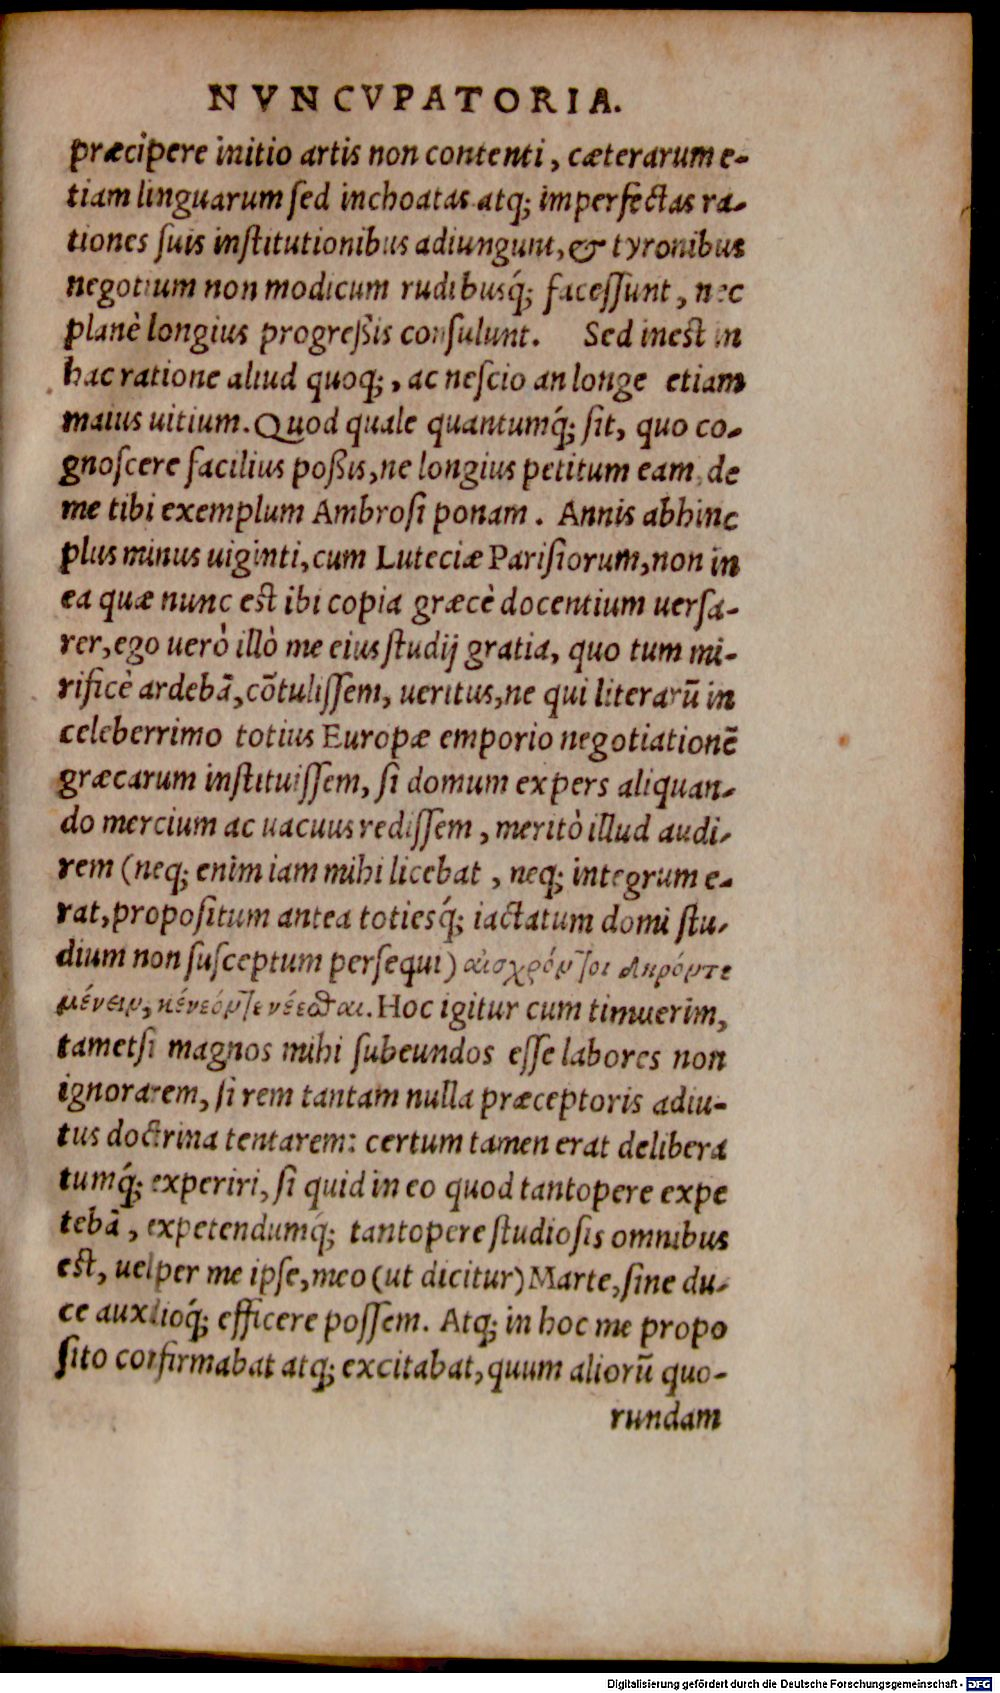 NVNCVPATORIA.
præcipere initio artis non contenti, cæterarum e-
tiam linguarum sed inchoatas atq; imperfectas ra-
tiones suis institutionibus adiungunt, & tyronibus
negotium non modicum rudibusq́; facessunt, nec
planè longius progreßis consulunt. Sed inest in
hac ratione aliud quoq;, ac nescio an longe etiam
maius uitium. Quod quale quantumq́; sit, quo co-
gnoscere facilius poßis, ne longius petitum eam, de
me tibi exemplum Ambrosi ponam. Annis abhinc
plus minus uiginti, cum Luteciæ Parisiorum, non in
ea quæ nunc est ibi copia græcè docentium uersa-
rer, ego uerò illò me eius studij gratia, quo tum mi-
rificè ardebā, cōtulissem, ueritus, ne qui literarū in
celeberrimo totius Europæ emporio negotiationē
græcarum instituissem, si domum expers aliquan-
do mercium ac uacuus redissem, meritò illud audi-
rem (neq; enim iam mihi licebat, neq; integrum e-
rat, propositum antea totiesq́; iactatum domi stu-
dium non susceptum persequi) αἰσχρόν τοι δηρόν τε
μένειν, κένεόν τε νέεσθαι. Hoc igitur cum timuerim,
tametsi magnos mihi subeundos esse labores non
ignorarem, si rem tantam nulla præceptoris adiu-
tus doctrina tentarem: certum tamen erat delibera
tumq́; experiri, si quid in eo quod tantopere expe
tebā, expetendumq́; tantopere studiosis omnibus
est, uel per me ipse, meo (ut dicitur) Marte, sine du-
ce auxilioq́; efficere possem. Atq; in hoc me propo
sito confirmabat atq; excitabat, quum aliorū quo-
rundam
Digitalisierung gefördert durch die Deutsche Forschungsgemeinschaft - DFG